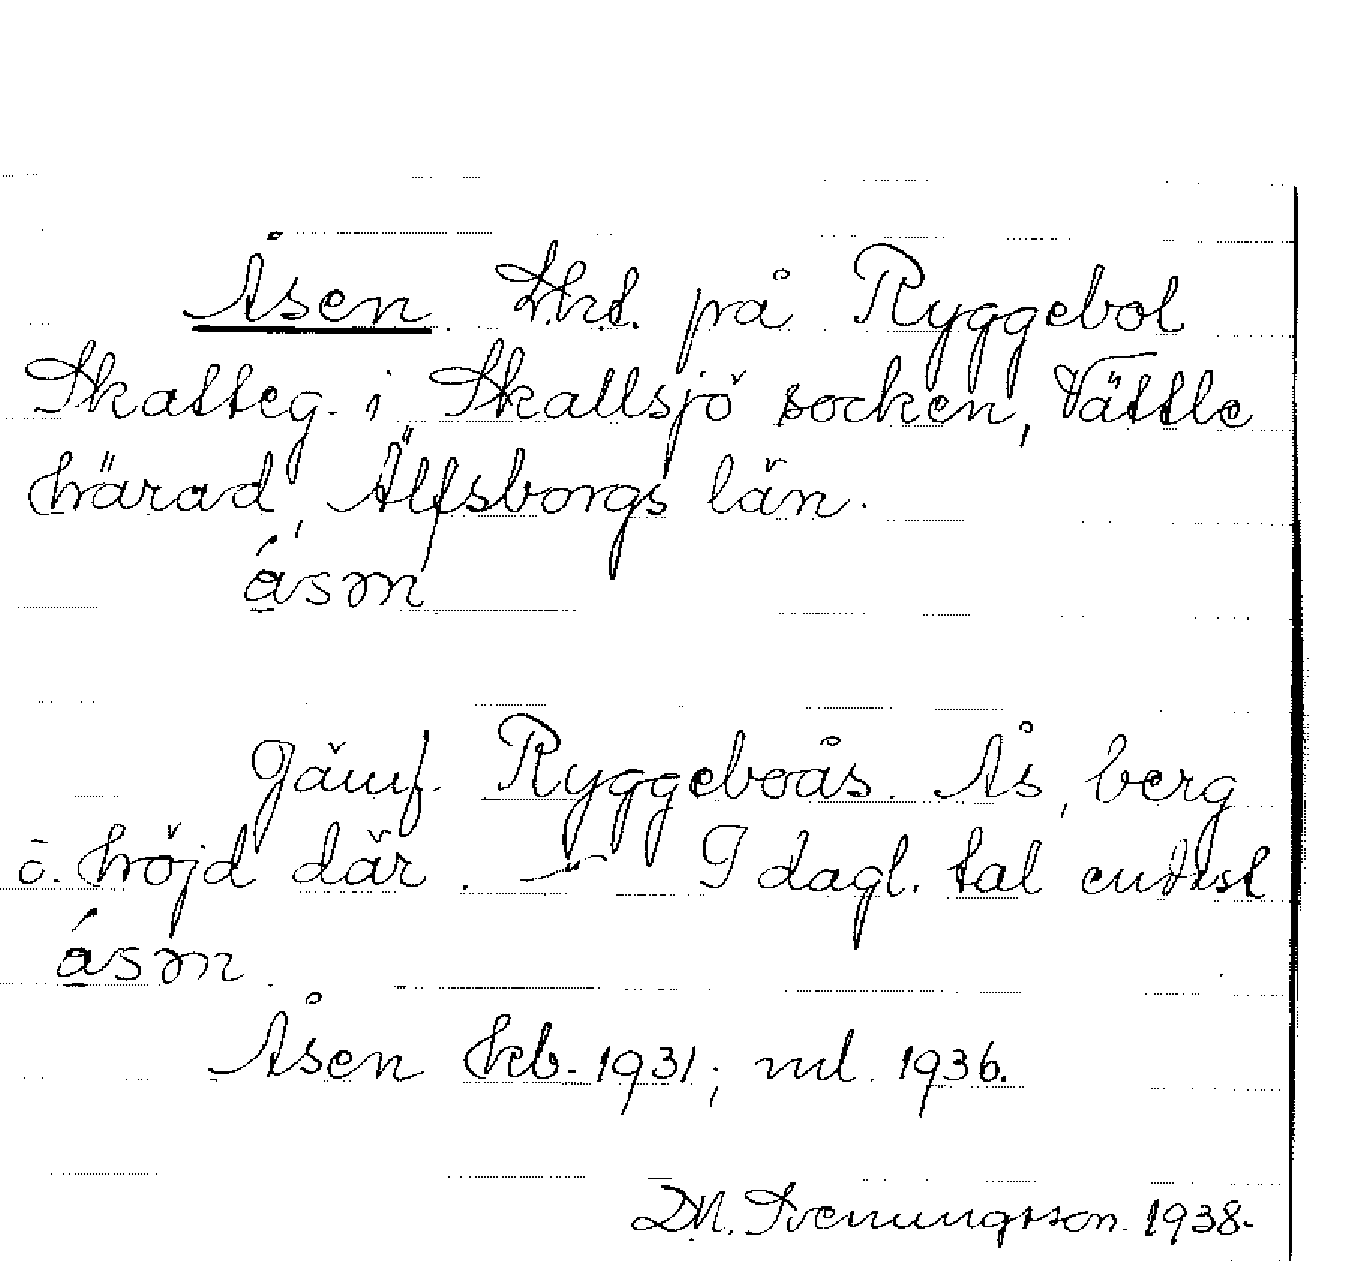 Åsen. Lht. på Ryggebol
Skatteg. i Skallsjö socken, Vättle
härad, Älfsborgs län.
åsn
Jämf. Ryggeboås. Ås, berg
o. höjd där. — I dagl. tal endast
åsn.
Åsen hkb. 1931; ml. 1936.
D.N. Svenungsson. 1938.